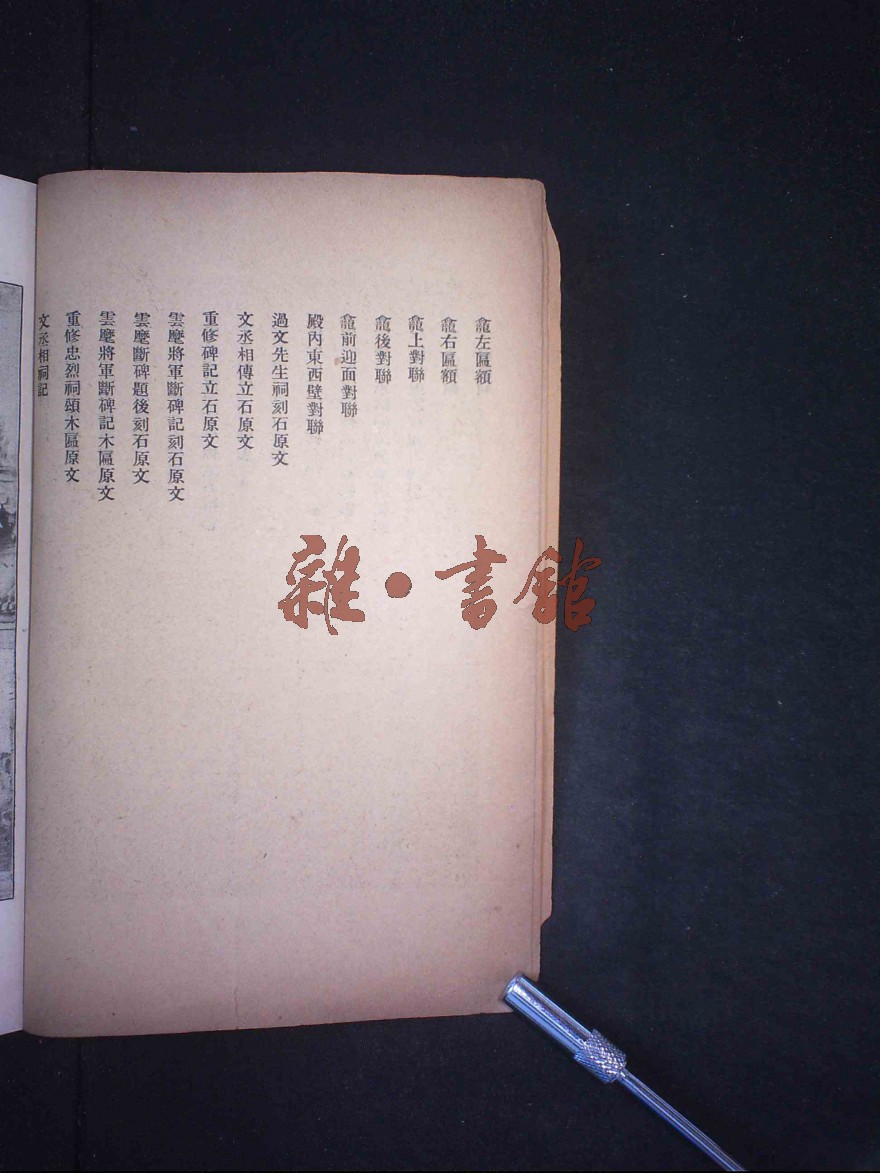 龕左匾額
龕右匾額
龕上對聯
龕後對聯
龕前迎面對聯
殿內東西壁對聯
過文先生祠刻石原文
文丞相傳立石原文
重修碑記立石原文
雲麾將軍斷碑記刻石原文
雲麾斷碑題後刻石原文
雲麾將軍斷碑記木匾原文
重修忠烈祠頌木匾原文
文丞相祠記
雜·書館